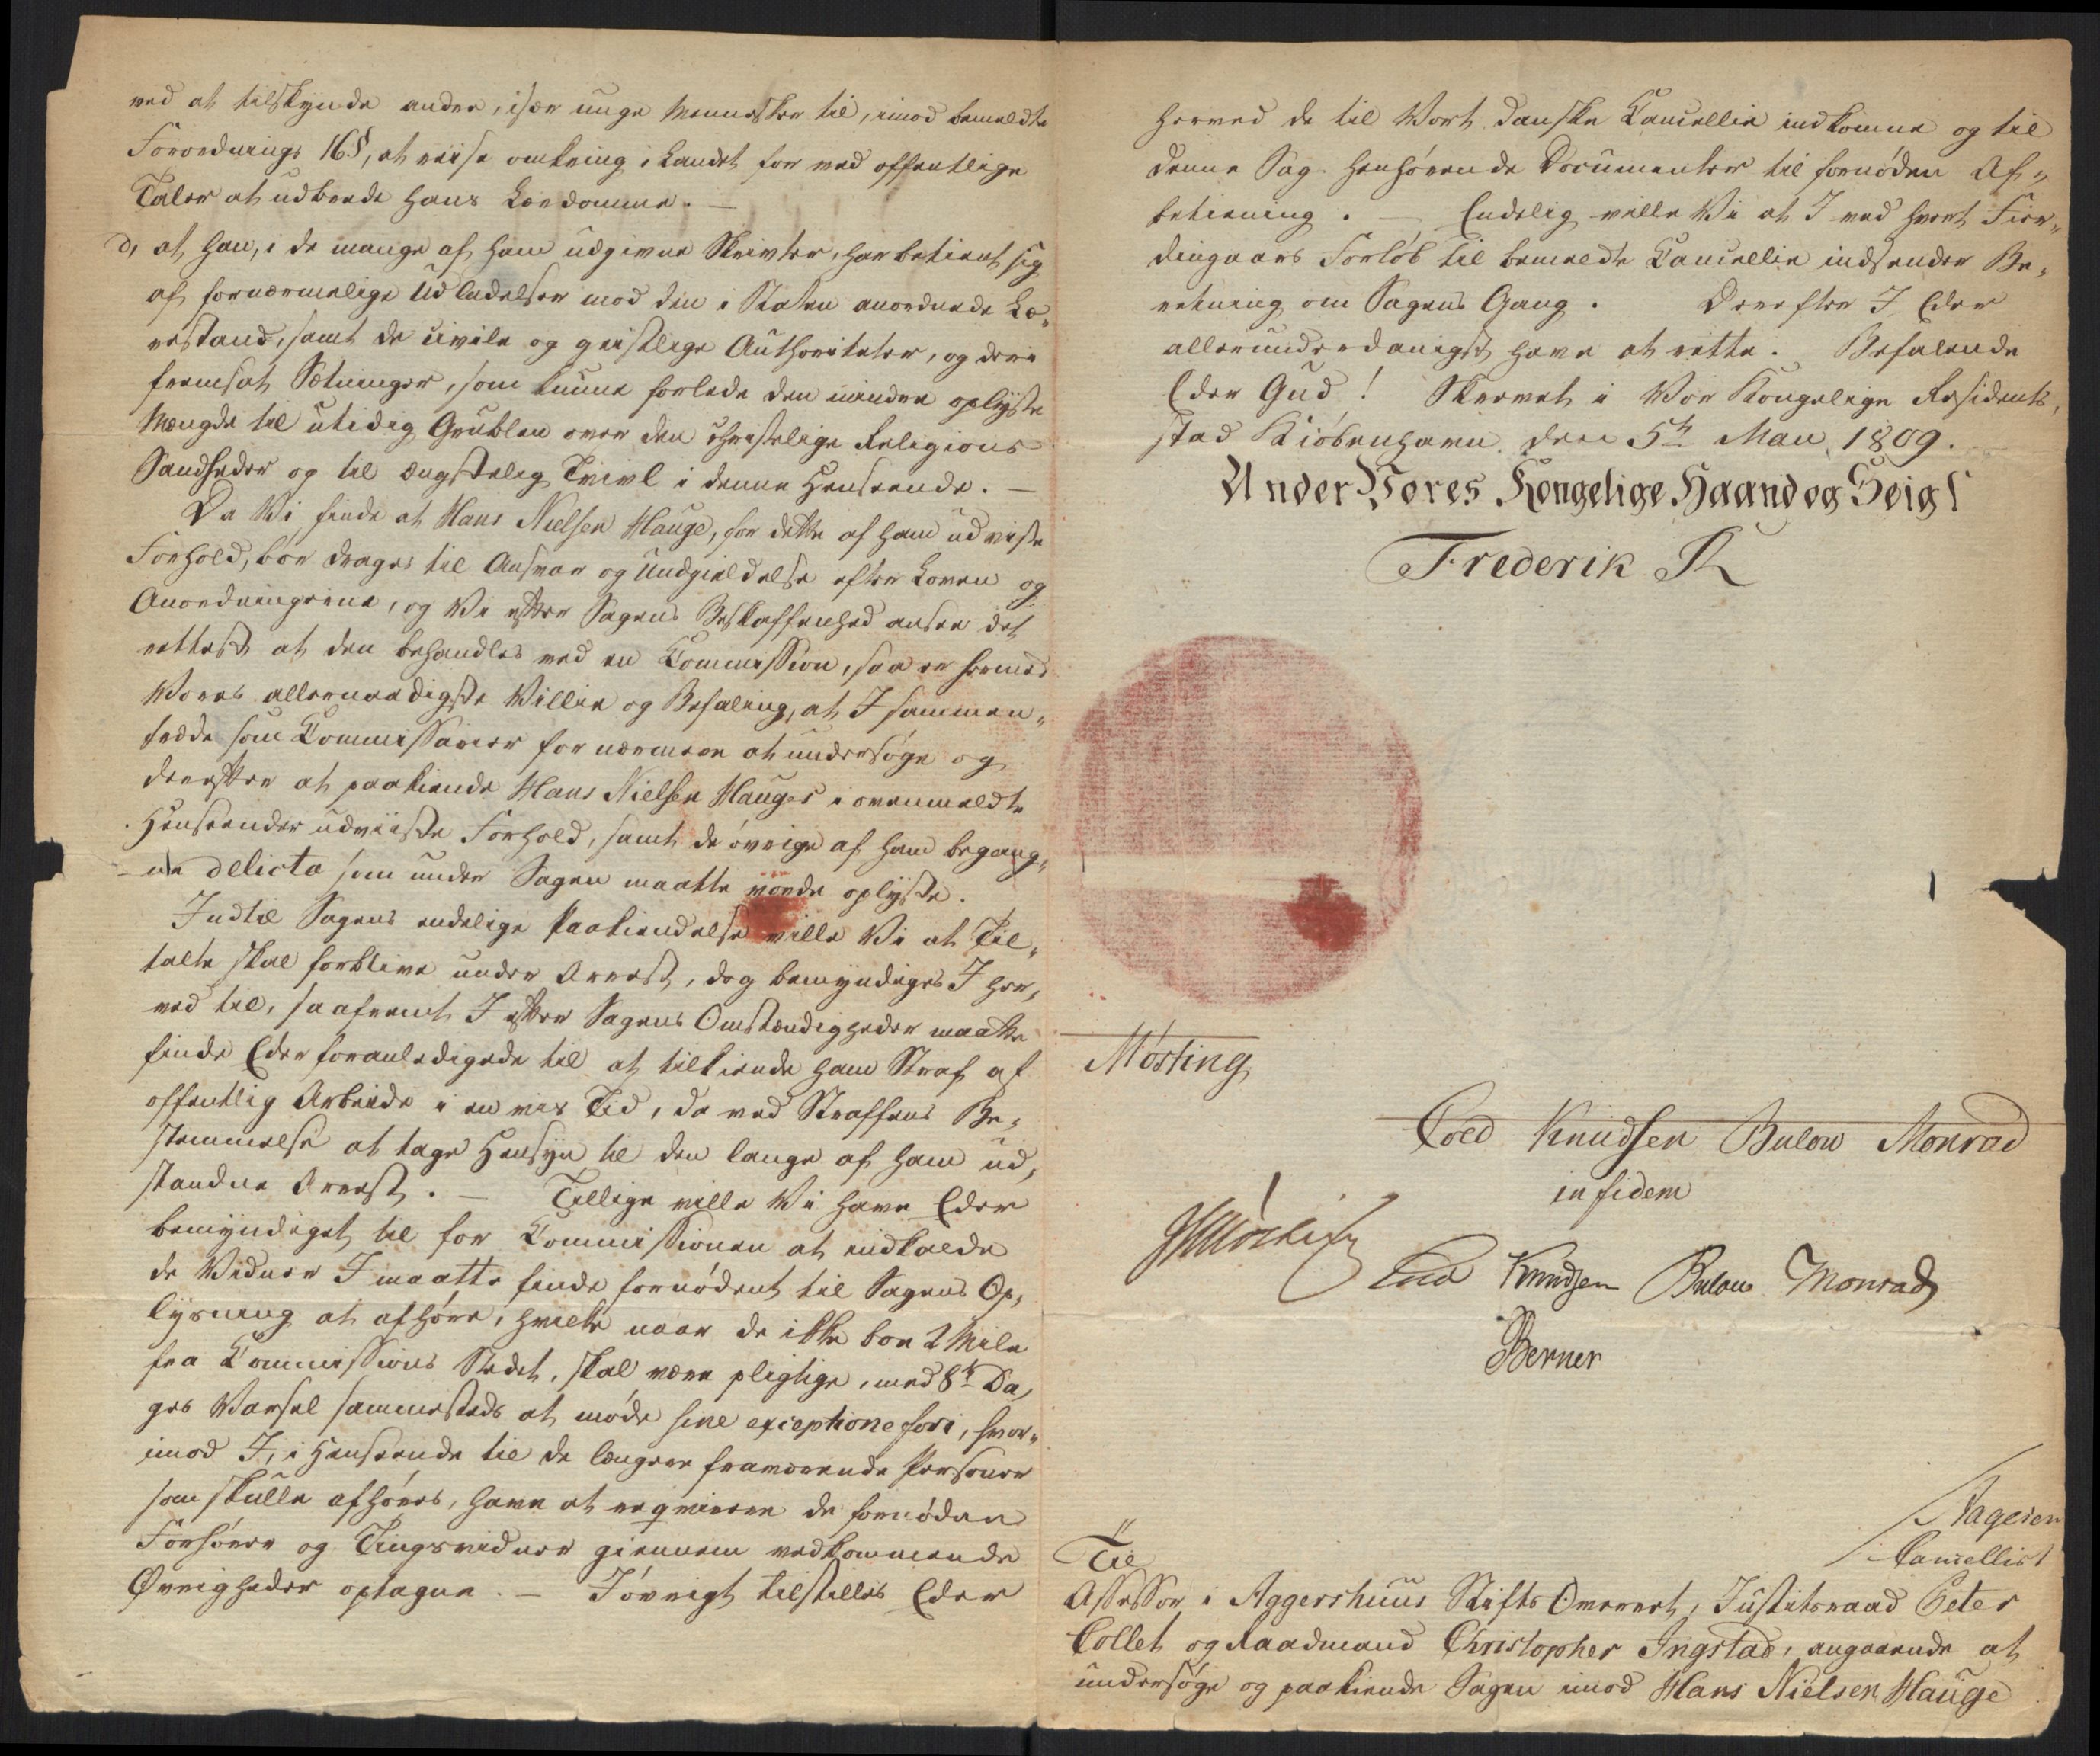 ved at tilskynde andre, især unge Mennesker til, imod bemeldte
Forordnings 16§, at reise omkring i Landet for ved offentlige
Taler at udbrede hans Lærdomme. —
d, at han, i de mange af ham udgivne Skrivter, har betient sig
af fornærmelige Udladelser mod den i Staten anordnede Læ„
restand, samt de civile og geistlige Authoriteter, og deri
fremsat Sætninger, som kunne forlede den mindre oplyste
Mængde til utidig Grublen over den christelige Religions
Sandheder og til ængstelig Tvivl i denne Henseende. —
Da Vi finde at Hans Nielsen Hauge, for dette af ham udviste
Forhold, bør drages til Ansvar og Undgieldelse efter Loven og
Anordningerne, og Vi efter Sagens Beskaffenhed ansee det
rettest at den behandles ved en Commission, saa er hermed
Vores allernaadigste Villie og Befaling, at I sammen„
træde som Commissairer for nærmere at undersøge og
derefter at paakiende Hans Nielsen Hauges i ovenmeldte
Henseender udviiste Forhold, samt de øvrige af ham begang„
ne delicta som under Sagen maatte vorde oplyste.
Indtil Sagens endelige Paakiendelse ville Vi at Til„
talte skal forblive under Arrest, dog bemyndiges I her„
ved til, saafremt I efter Sagens Omstændigheder maatte
finde Eder foranledigede til at tilkiende ham Straf af
offentlig Arbeide i en vis Tid, da ved Straffens Be„
stemmelse at tage Hensyn til den lange af ham ud„
standne Arrest. — Tillige ville Vi have Eder
bemyndiget til for Commissionen at indkalde
de Vidner I maatte finde fornødent til Sagens Op„
lysning at afhøre, hvilke naar de ikke boe 2 Mile
fra Commissions Stedet, skal være pligtige, med 8te Da„
ges Varsel sammesteds at møde sine exceptione fori, hvor„
imod I, i Henseende til de længere fraværende Personer
som skulle afhøres, have at reqvirere de fornødne
Forhører og Tingsvidner giennem vedkommende
Øvrigheder optagne. — I øvrigt tilstilles Eder
herved de til Vort danske Cancellie indkomne og til
denne Sag henhørende Documenter til fornøden Af„
betiening. — Endelig ville Vi at I ved hvert Fier„
dingaars Forløb til bemeldte Cancellie indsender Be„
retning om Sagens Gang. Derefter I Eder
allerunderdanigst have at rette. Befalende
Eder Gud! Skrevet i Vor Kongelige Residents„
stad Kiøbenhavn den 5te Mai 1809.
Under Vores Kongelige Haand og Seigl
Frederik R
Møsting
Cold Knudsen Bulow Monrad
in fidem
JMøsting Cold Knudsen Bulow Monrad
Berner
Aagesen
Cancellist
Til
Assessor i Aggershuus Stifts Overret, Justitsraad Peter
Collet og Raadmand Christopher Ingstad, angaaende at
undersøge og paakiende Sagen imod Hans Nielsen Hauge